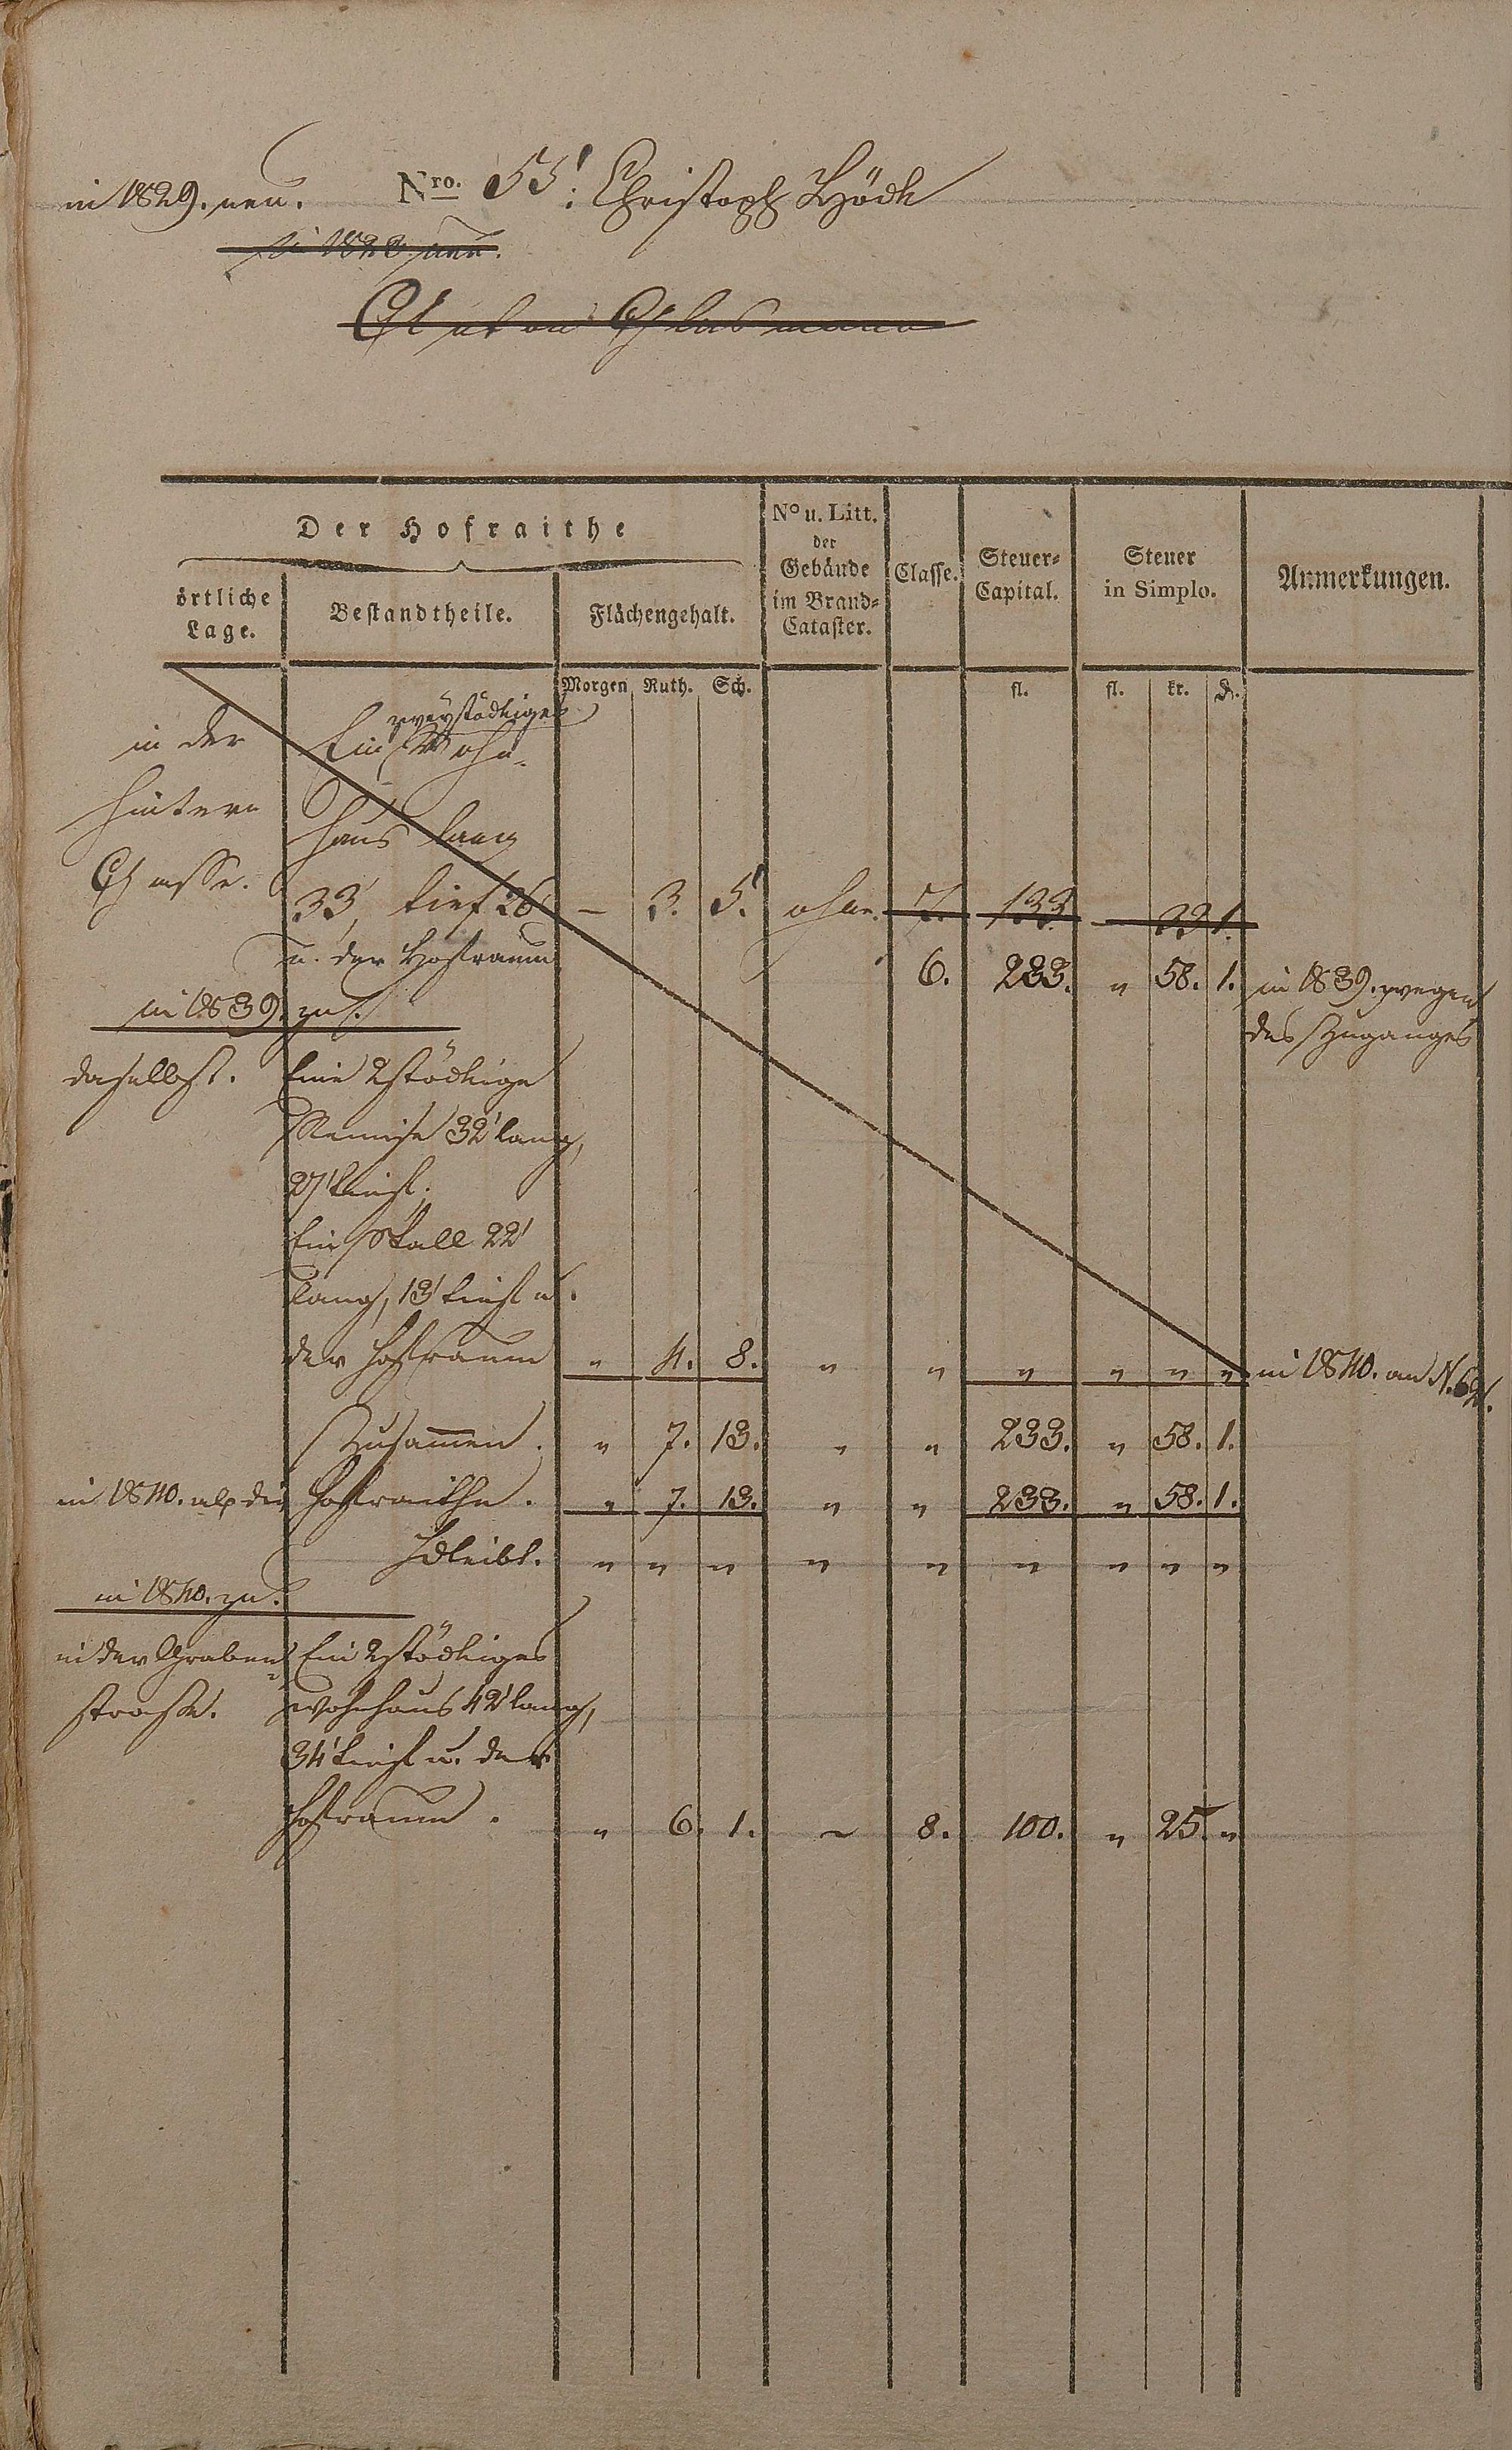 in 1829. neu. Nro. 55. Christoph Höck
in 1828 neu.
Der Hofraithe
örtliche Lage.
Bestandtheile.
Flächengehalt.
No u. Litt. der Gebäude im Brand-Cataster.
Classe.
Steuer-Capital.
Steuer in Simplo.
Anmerkungen.
Morgen Ruth. Sch. fl. fl. kr. d.
zweystöckiges
in der Ein Wohn-
hintern haus lang
Gasse. 33' tief 26 – 3. 5. ohne. 7. 133. – 33 1.
u. der Hofraum 6. 233. " 58. 1. in 1839. wegen
in 1839. zu. des Zuganges
daselbst. Eine 2stöckige
Remise 32' lang,
27' tief.
Ein Stall 22'
lang, 13' tief u.
der Hofraum " 4. 8. " " " " " " in 1840. an N.
Zusammen. " 7. 13. " " 233. " 58. 1.
in 1840. ab die Hofraithe. " 7. 13. " " 233. " 58. 1.
Bleibt. " " " " " " " " "
in 1840. zu.
in der Graben- Ein 2stöckiges
strasse. Wohnhaus 42' lang,
34' tief u. der
Hofraum. " 6. 1. ~ 8. 100. " 25. "